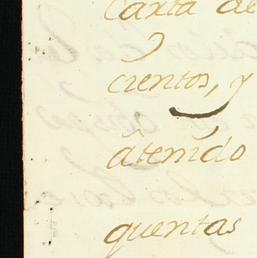 Carta de
cientos, y
atenido
quentas